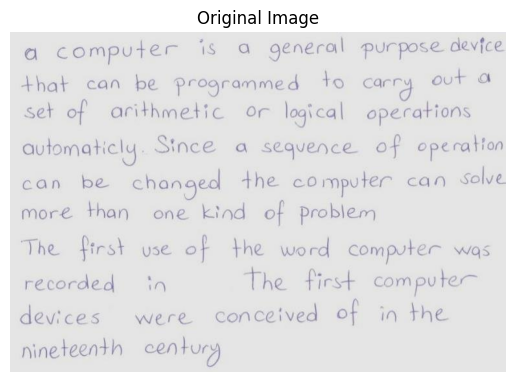 Original Image
a computer is a general purpose device
that can be programmed to carry out a
set of arithmetic or logical operations
automaticly. Since a sequence of operation
can be changed the computer can solve
more than one kind of problem
The first use of the word computer was
recorded in The first computer
devices were conceived of in the
nineteenth century